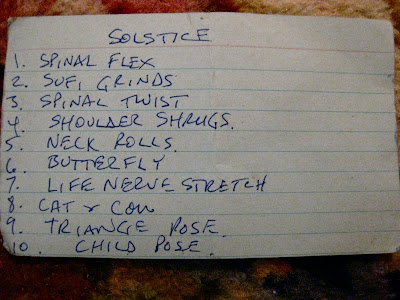 SOLSTICE
1. SPINAL FLEX
2. SUFI GRINDS
3. SPINAL TWIST
4 SHOULDER SHRUGS.
5. NECK ROLLS.
6. BUTTERFLY
7. LIFE NERVE STRETCH
8. CAT & COW
9. TRIANGE POSE.
10. CHILD POSE.